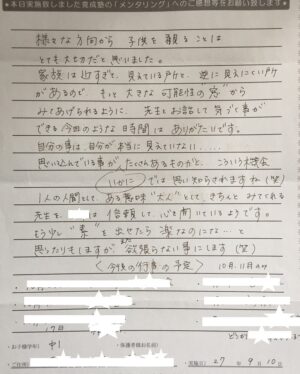 ★本日実施致しました育成塾の「メンタリング」へのご感想等をお願い致します。★
様々な方向から 子供を観ることは
とても大切だと思いました。
家族は近すぎて、見えている所と、逆に見えにくい所
があるので、もっと大きな可能性の窓から
みてあげられるように 先生とお話して気づく事が
できる今回のような時間は ありがたいです。
自分の事は、自分が本当に見えていない.....
思い込んでいる事がたくさんあるものだと、こういう機会
いかに
でも思い知らされますね(笑)
1人の人間として、ある意味"大人"として、きちんとみてくれる
先生を、 は信頼して、心を開いているようです。
もう少し"素"を出せたら 楽なのにな…と
思ったりもしますが まだ 欲張らない事にします(笑)
〈今後の行事の予定〉 10月、11月
17日
・お子様学年) 中1
・保護者様お名前)
・ご住所)
・実施日) 27年 9月10日